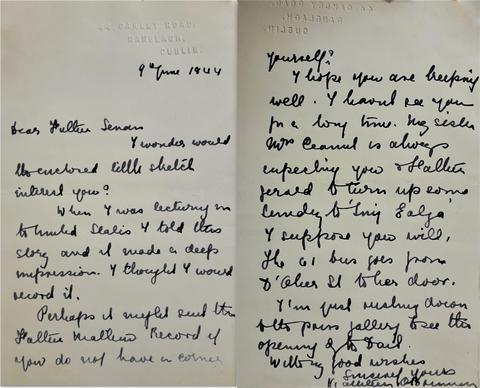 44 OAKLEY ROAD,
RANELAGH,
DUBLIN.
9th June 1944
Dear Father Senan
I wonder would
the enclosed little sketch
interest you?
When I was lecturing in
the United States I told this
story and it made a deep
impression. I thought I would
record it.
Perhaps it might suit the
Father Mathew Record if
you do not have a corner
44 OAKLEY ROAD,
RANELAGH,
DUBLIN.
yourself?
I hope you are keeping
well. I havnt see you
for a long time. My sister
Mrs Ceannt is always
expecting you & Father
Gerald to turn up some
Sunday to
I suppose you will,
The 61 bus goes from
D'Olier St to her door.
I'm just rushing down
to the press gallery to see the
opening of the Dail.
With good wishes
Sincerely yours